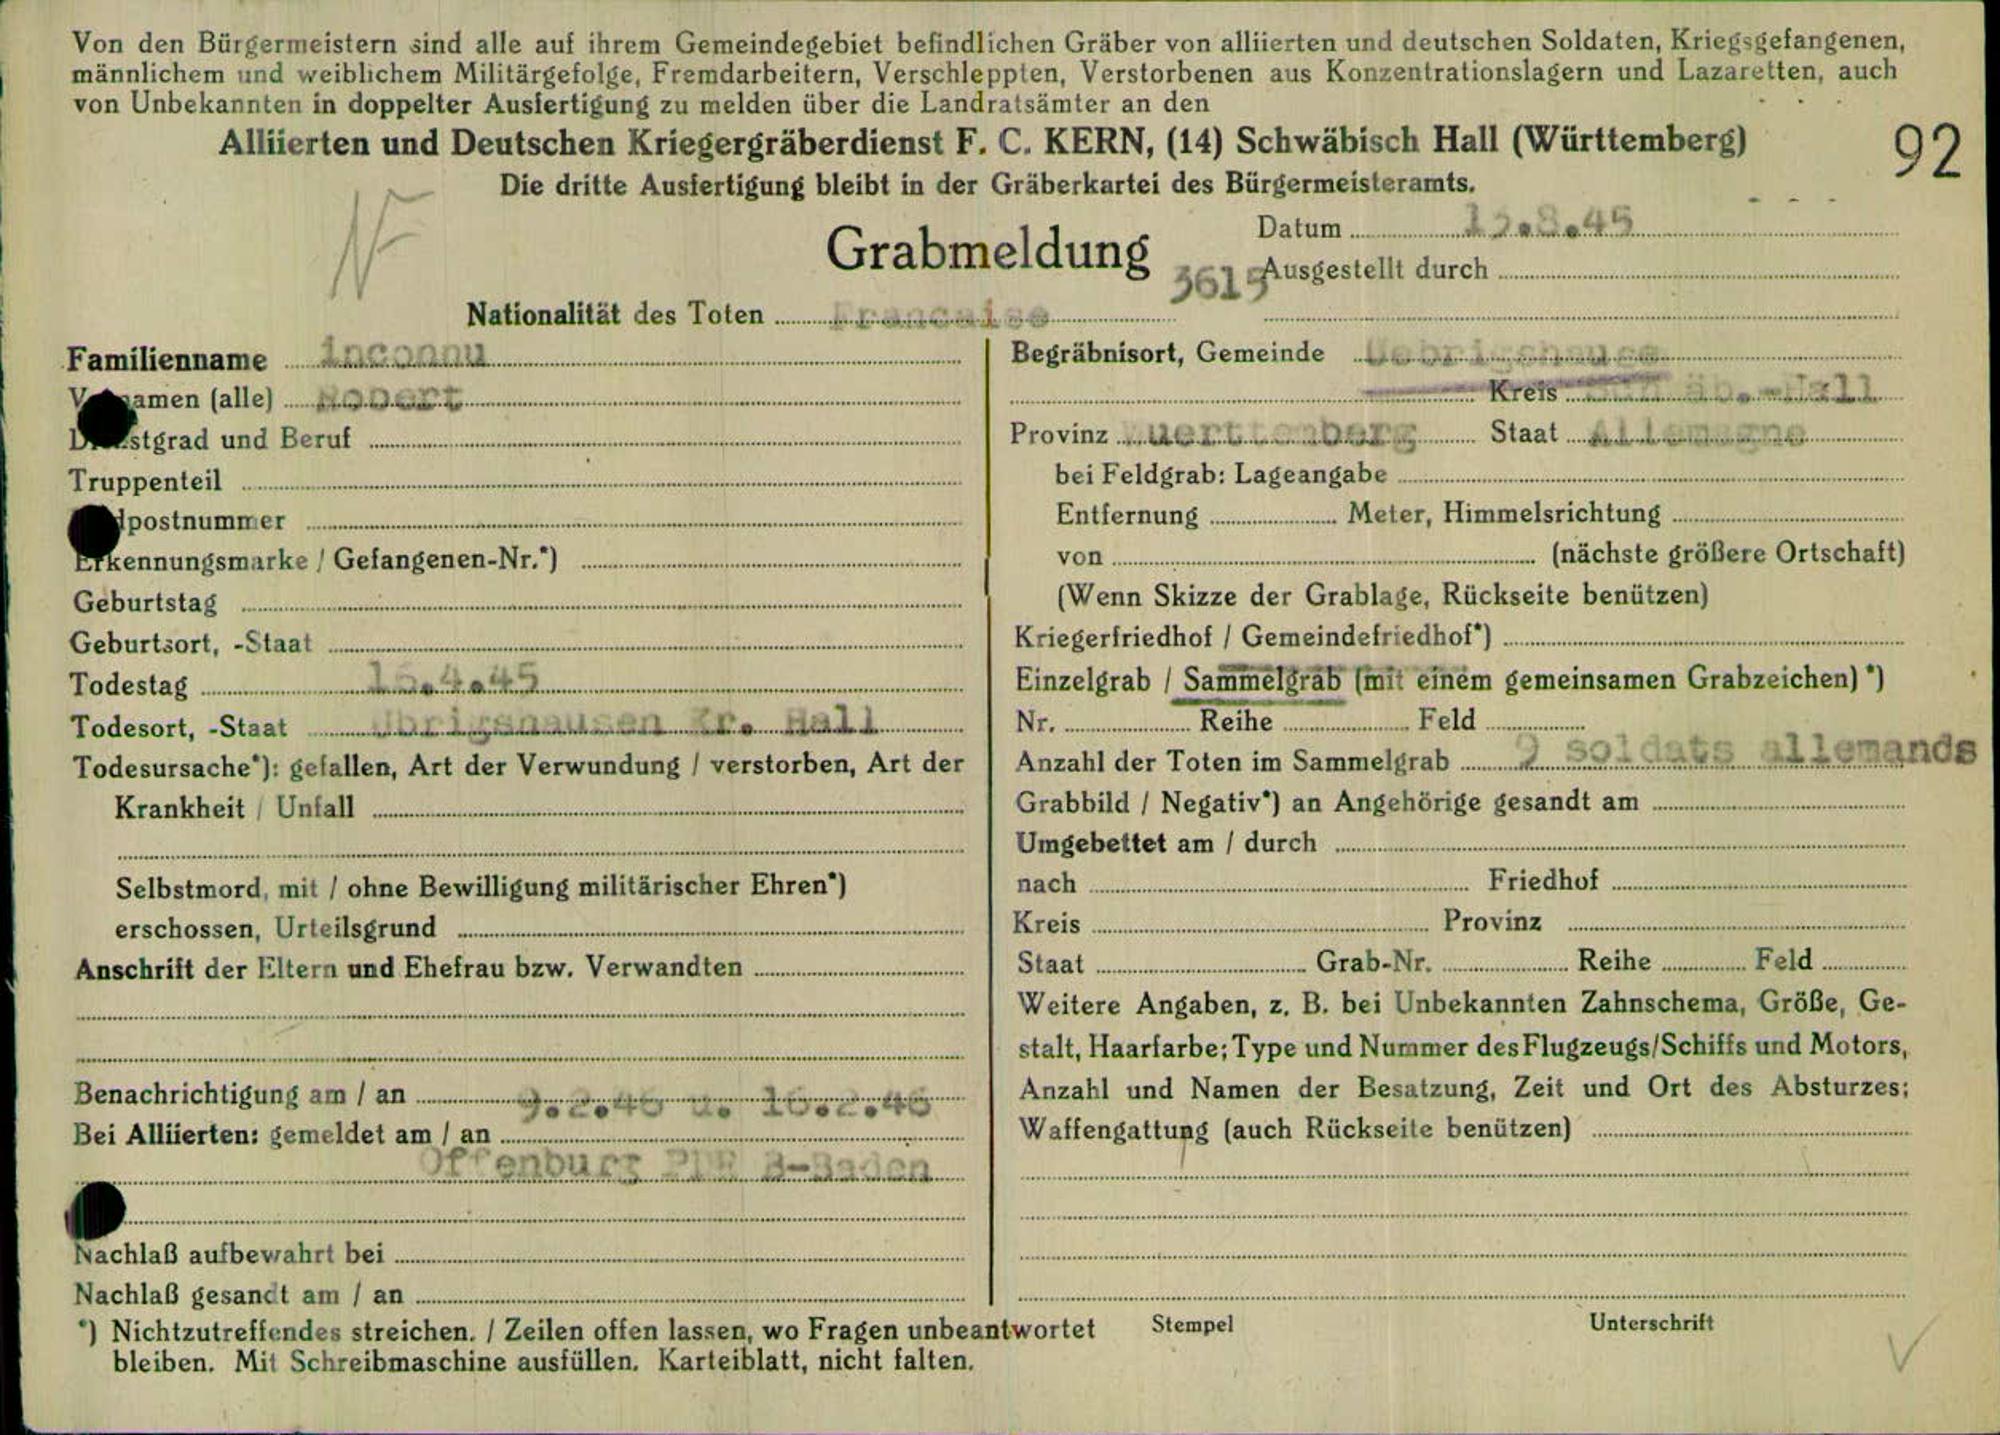 Von den Bürgermeistern sind alle auf ihrem Gemeindegebiet befindlichen Gräber von alliierten und deutschen Soldaten, Kriegsgefangenen,
männlichem und weiblichem Militärgefolge, Fremdarbeitern, Verschleppten, Verstorbenen aus Konzentrationslagern und Lazaretten, auch
von Unbekannten in doppelter Ausfertigung zu melden über die Landratsämter an den
Alliierten und Deutschen Kriegergräberdienst F. C. KERN, (14) Schwäbisch Hall (Württemberg)
92
Die dritte Ausfertigung bleibt in der Gräberkartei des Bürgermeisteramts.
NF
Grabmeldung
3615
Datum .8.45
Ausgestellt durch
Nationalität des Toten Francaise
Familienname inconnu
Vornamen (alle) Robert
Dienstgrad und Beruf
Truppenteil
Feldpostnummer
Erkennungsmarke / Gefangenen-Nr.*)
Geburtstag
Geburtsort, -Staat
Todestag 15.4.45
Todesort, -Staat Übrigshausen Kr. Hall
Todesursache*): gefallen, Art der Verwundung / verstorben, Art der
Krankheit / Unfall
Selbstmord, mit / ohne Bewilligung militärischer Ehren*)
erschossen, Urteilsgrund
Anschrift der Eltern und Ehefrau bzw. Verwandten
Benachrichtigung am / an 9.2.46 u. 16.2.46
Bei Alliierten: gemeldet am / an
Offenburg PDR B-Baden
Nachlaß aufbewahrt bei
Nachlaß gesandt am / an
*) Nichtzutreffendes streichen. / Zeilen offen lassen, wo Fragen unbeantwortet
bleiben. Mit Schreibmaschine ausfüllen. Karteiblatt, nicht falten.
Begräbnisort, Gemeinde Uebrigshausen
Kreis Schwäb.-Hall
Provinz Wuerttemberg Staat Allemagne
bei Feldgrab: Lageangabe
Entfernung Meter, Himmelsrichtung
von (nächste größere Ortschaft)
(Wenn Skizze der Grablage, Rückseite benützen)
Kriegerfriedhof / Gemeindefriedhof*)
Einzelgrab / Sammelgrab (mit einem gemeinsamen Grabzeichen) *)
Nr. Reihe Feld
Anzahl der Toten im Sammelgrab 9 soldats allemands
Grabbild / Negativ*) an Angehörige gesandt am
Umgebettet am / durch
nach Friedhof
Kreis Provinz
Staat Grab-Nr. Reihe Feld
Weitere Angaben, z. B. bei Unbekannten Zahnschema, Größe, Ge-
stalt, Haarfarbe; Type und Nummer des Flugzeugs/Schiffs und Motors,
Anzahl und Namen der Besatzung, Zeit und Ort des Absturzes;
Waffengattung (auch Rückseite benützen)
Stempel Unterschrift